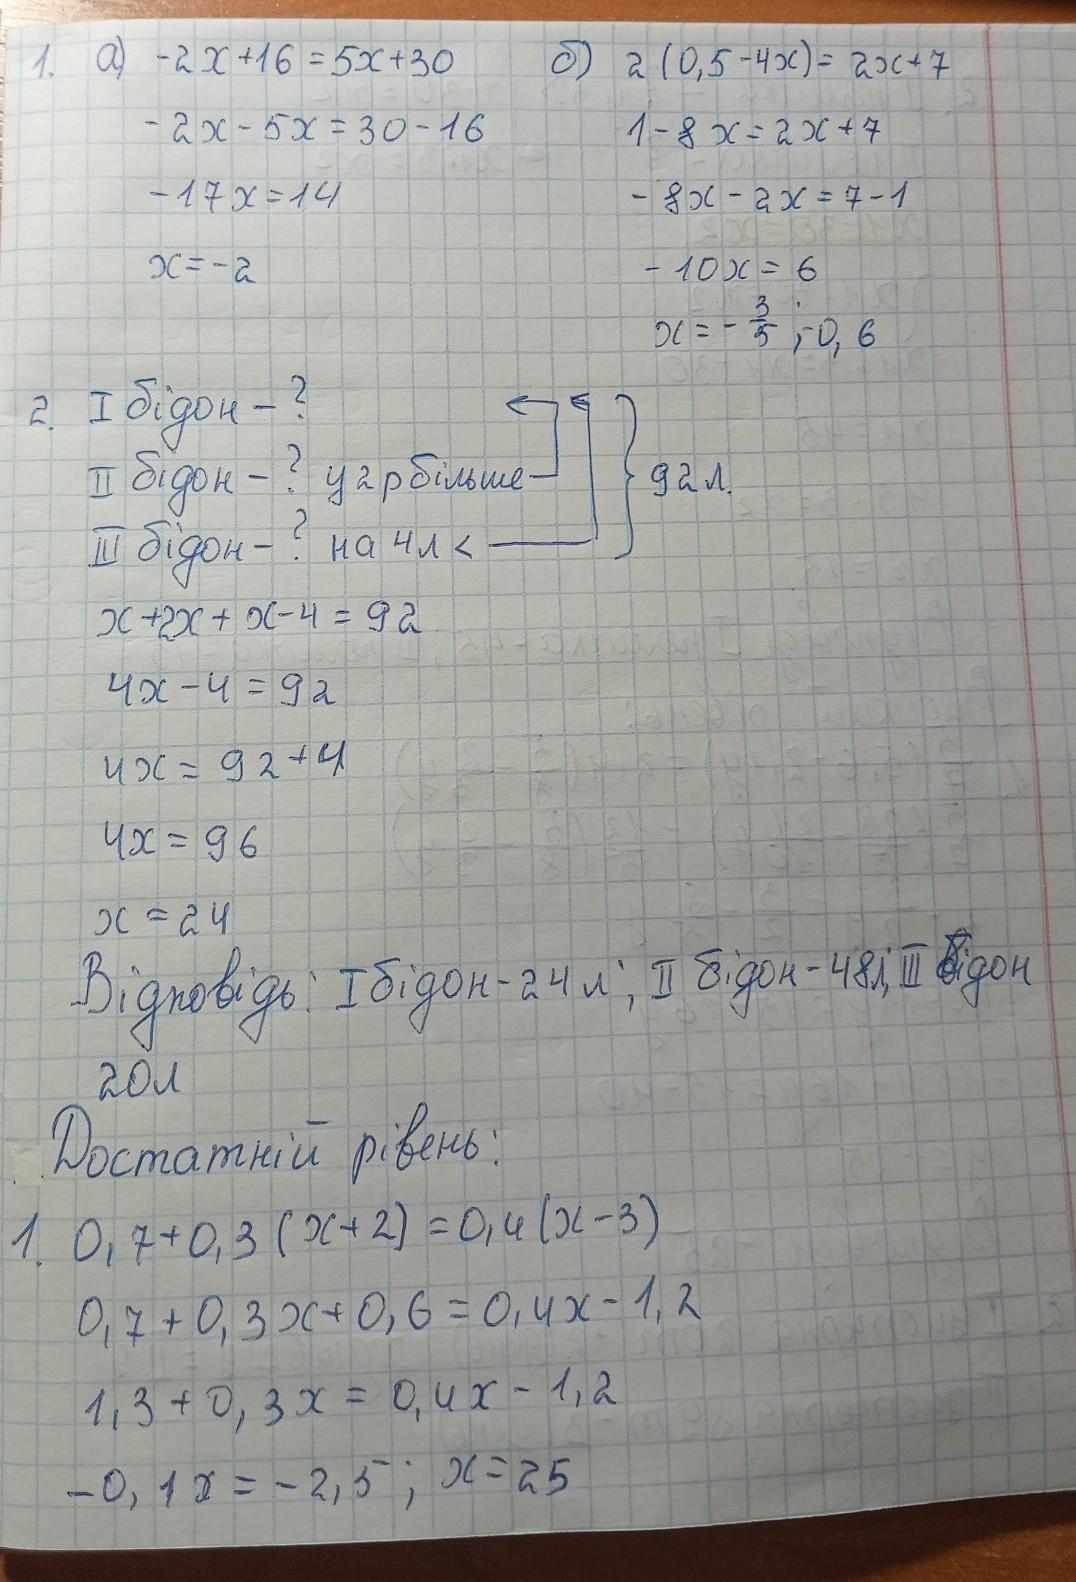 1. а) -2x+16=5x+30
-2x-5x=30-16
-17x=14
x=-2
б) 2(0,5-4x)=2x+7
1-8x=2x+7
-8x-2x=7-1
-10x=6
x=-3/5; -0,6
2. I бідон-?
II бідон-? у 2р більше
III бідон-? на 4л <
92л.
x+2x+x-4=92
4x-4=92
4x=92+4
4x=96
x=24
Відповідь: I бідон-24л; II бідон-48л; III бідон
20л
Достатній рівень:
1. 0,7+0,3(x+2)=0,4(x-3)
0,7+0,3x+0,6=0,4x-1,2
1,3+0,3x=0,4x-1,2
-0,1x=-2,5; x=25